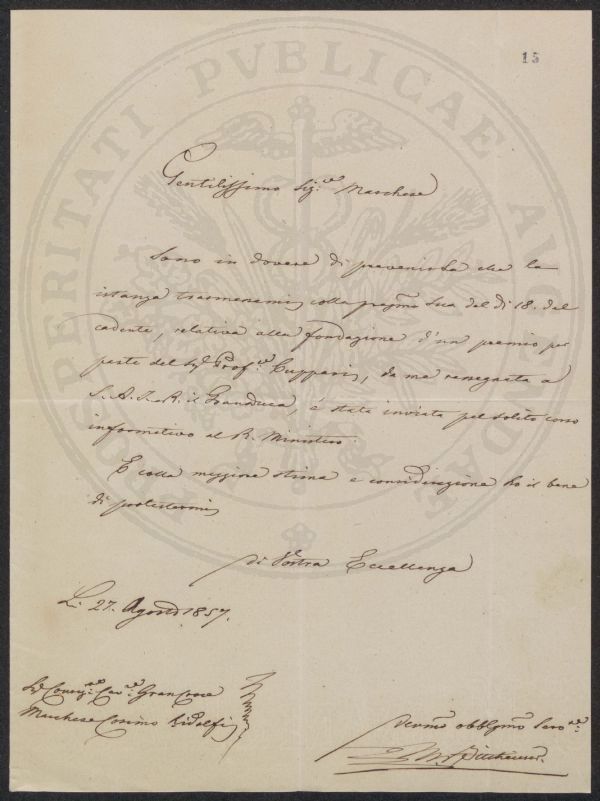 15
PROSPERITATI PVBLICAE AVGENDAE
Gentilissimo Sig.re Marchese
Sono in dovere di prevenirLa che la
istanza trasmessami colla pregma Sua del dì 18. del
cadente, relativa alla fondazione d'un premio per
parte del Sig.r Prof.re Cuppari, da me rassegnata a
S. A. I. e R. il Granduca, è stata inviata pel solito corso
informativo al R. Ministero
E colla maggiore stima e considerazione ho il bene
di protestarmi
Di Vostra Eccellenza
Li 27. Agosto 1857.
Cav.re Gran Croce
Marchese Cosimo Ridolfi
Devmo obblgmo Serv.re